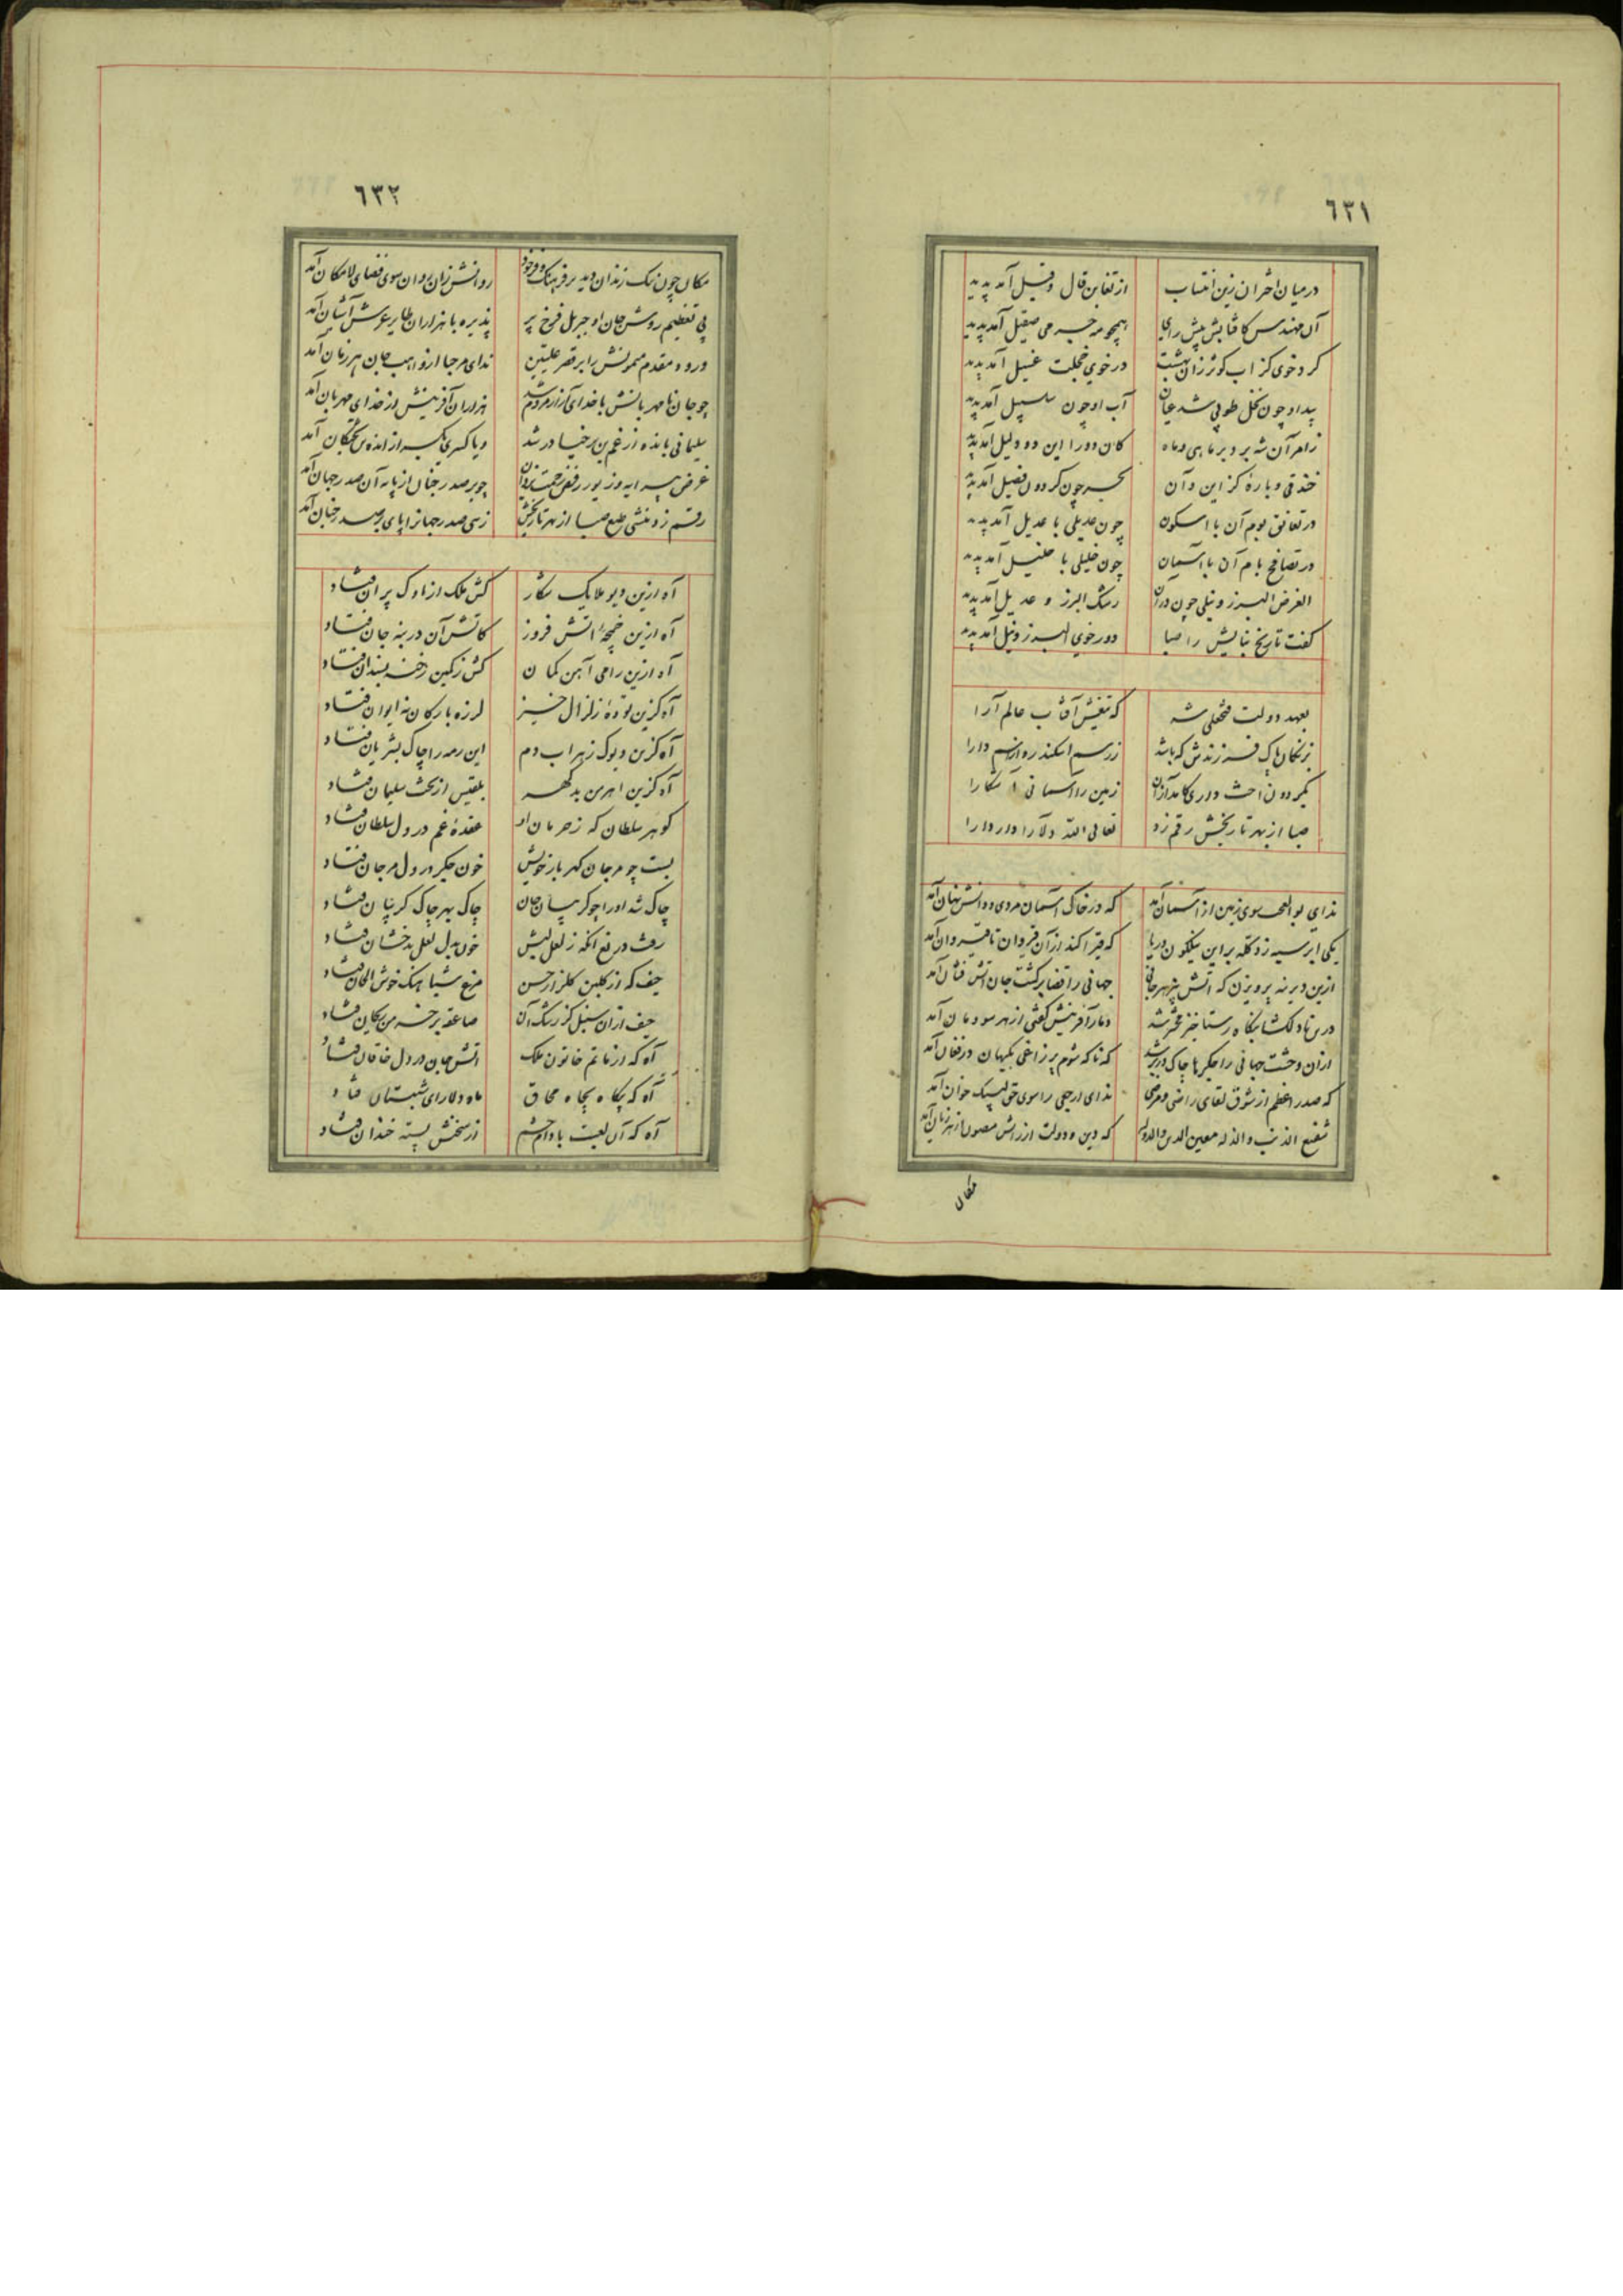 ٦٣١
درمیان اختران زین انتساب از تغابن قال و قیل آمد پدید
آن مهندس کافتابش پیش رای همچو مه جرمی صقیل آمد پدید
کرد خوی کز آب کوثر زان بهشت در خوی خجلت غسیل آمد پدید
بید او چون نخل طوبی شد عیان آب او چون سلسبیل آمد پدید
زامر آن شه بر در ماهی و ماه کان دو را این دو دلیل آمد پدید
خندقی و بارهٔ کز این و آن بحر چون کردون فصیل آمد پدید
در تعانق بوم آن با اسکون چون عدیلی با عدیل آمد پدید
در تصافح بام آن با آسمان چون خلیلی با خلیل آمد پدید
الغرض البرز و نیلی چون در آن رشک البرز و عدیل آمد پدید
کفت تاریخ بنایش را صبا دور خوی البرز و نیل آمد پدید
بعهد دولت فتحعلی شه که تیغش آفتاب عالم آرا
ز نسکان پاک فرزندش که باشد ز رسم اسکندر و از اسم دارا
بکردون اخت داری کامد از آن زمین را آسمانی آشکارا
صبا از بهر تاریخش رقم زد تعالی الله دلارا دار دارا
ندای بوالعجب سوی زمین از آسمان آمد که در خاک آسمان مردی و دانش نهان آمد
یکی ابر سیه زد کله بر این نیلکون دریا که قیرآکند از آن قیروان تا قیروان آمد
ازین دیرینه پرویزن که آتش بیزد هر جانی جهانی را قضا برکشت جان آتش فشان آمد
درین نا دلکشا بنکاه رستاخیز محشر شد دمار آفرینش کفتی از هر سو دمان آمد
ازان وحشت جهانی را جکرها چاک در بر شد که ناکه شوم پر زاغی بکیهان در فغان آمد
که صدر اعظم از شوق لقای راضی و مرضی ندای ارجعی را سوی حق لبیک خوان آمد
شفیع الذنب والذله معین الدین والدوله که دین و دولت از رایش مصون از هر زیان آمد
مکان
٦٣٢
مکان چون تنک زندان دید بر فرهنک و فر خود روانش زان روان سوی فضای لامکان آمد
پی تعظیم روشن جان او جبریل فرخ پر پذیره با هزاران طایر عرش آشیان آمد
ورود مقدم میمونش را بر قصر علیین ندای مرحبا از واهب جان هر زمان آمد
چو جان نامهربانش با خدای آزار مردم شد هزاران آفرینش از خدای مهربان آمد
سلیمانی بانده از غم بن برخیا در شد و یا کسری یکسر از انده بزرجمکان آمد
چو بر صدر جنان از پایه آن صدر جهان آمد
رقم زد منشی طبع صبا از بهر تاریخش زهی صدر جهانرا پای بر صدر جنان آمد
آه ازین دیو ملایک شکار کش ملک از ناوک پران فتاد
آه ازین خمچهٔ آتش فروز کاتش آن در بنه جان فتاد
آه ازین رامی آهن کمان کش ز کمین رخنه بسندان فتاد
آه کزین تودهٔ زلزال خیز لرزه بارکان نه ایوان فتاد
آه کزین دیوک زهراب دم این رمه را چاک بشریان فتاد
آه کزین اهرمن بدکهر بلقیس از تخت سلیمان فتاد
کوهر سلطان که ز حرمان او عقدهٔ غم در دل سلطان فتاد
بست چو مرجان کهر بار خویش خون جکر در دل مرجان فتاد
چاک شد او را چو کریبان جان چاک بهر چاک کریبان فتاد
رفت دریغ آنکه ز لعل لبش خون بدل لعل بدخشان فتاد
حیف که از کلبن کلزار حسن مرغ شباهنک خوش الحان فتاد
حیف از آن سنبل کز رشک آن صاعقه بر خرمن ریحان فتاد
آه که از ماتم خاتون ملک آتش جان در دل خاقان فتاد
آه که بیکاه بچاه محاق ماه دلارای شبستان فتاد
آه که آن لعبت بادام چشم از سخنش پسته خندان فتاد